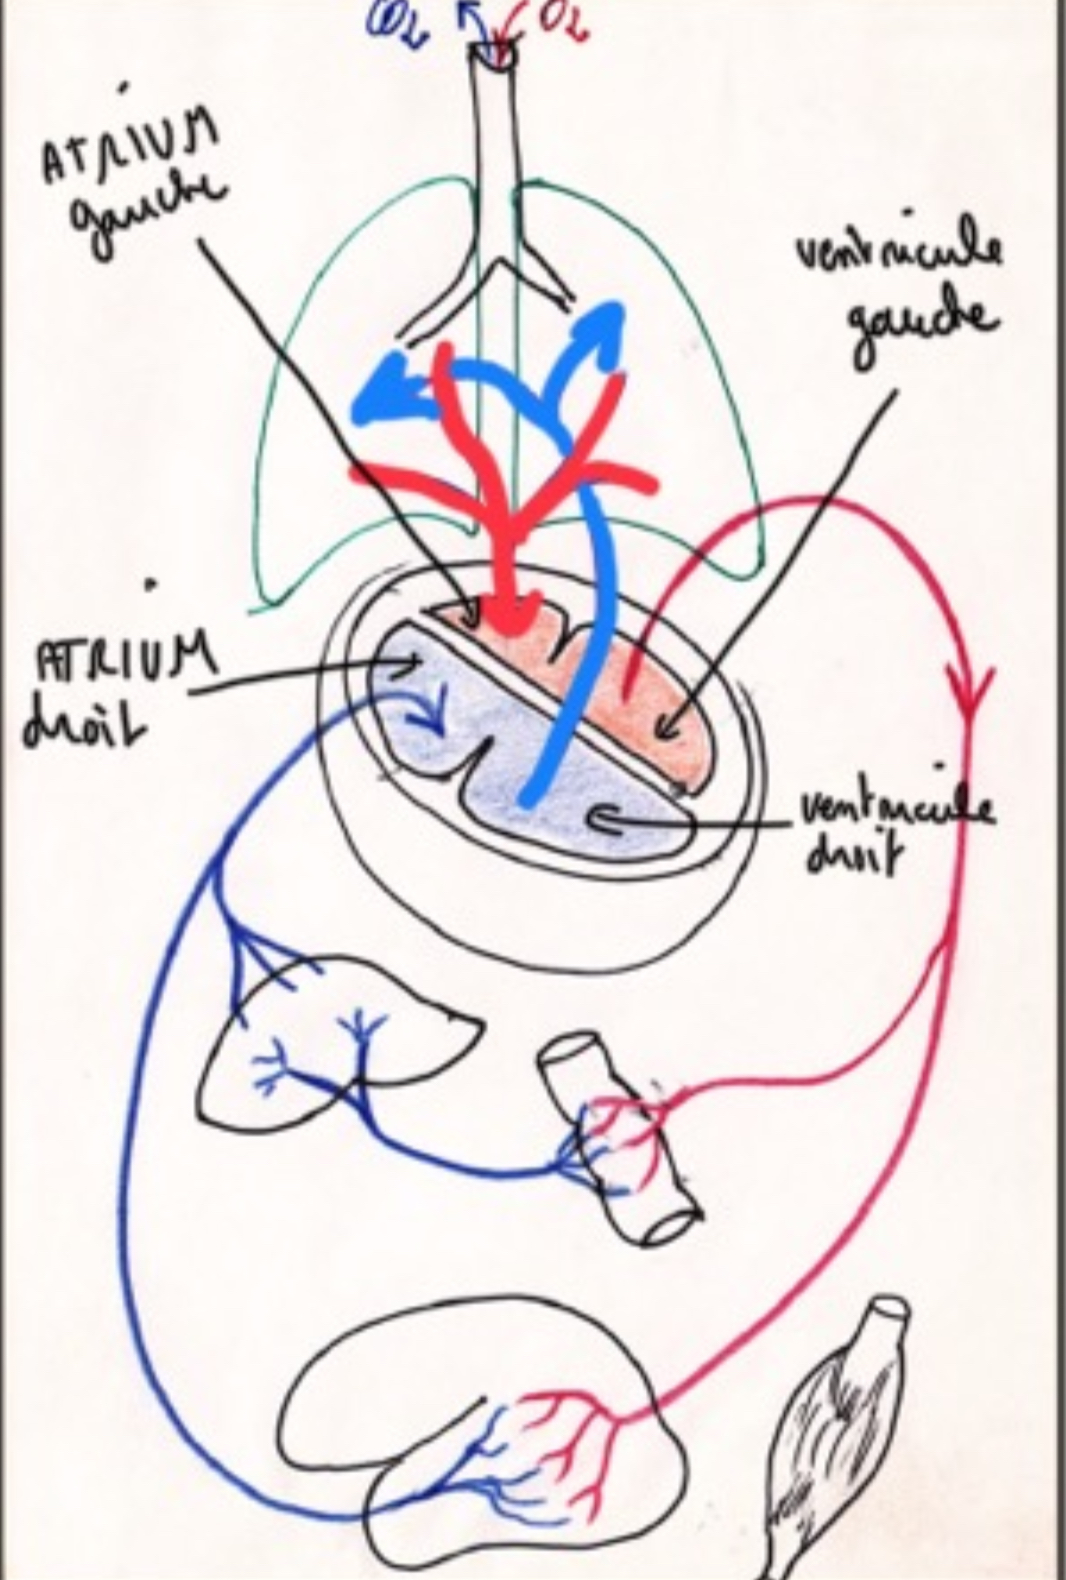 CO2
O2
ATRIUM
gauche
ventricule
gauche
ATRIUM
droit
ventricule
droit